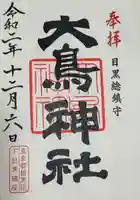 奉拝
目黒総鎮守
大鳥神社
令和二年十二月六日